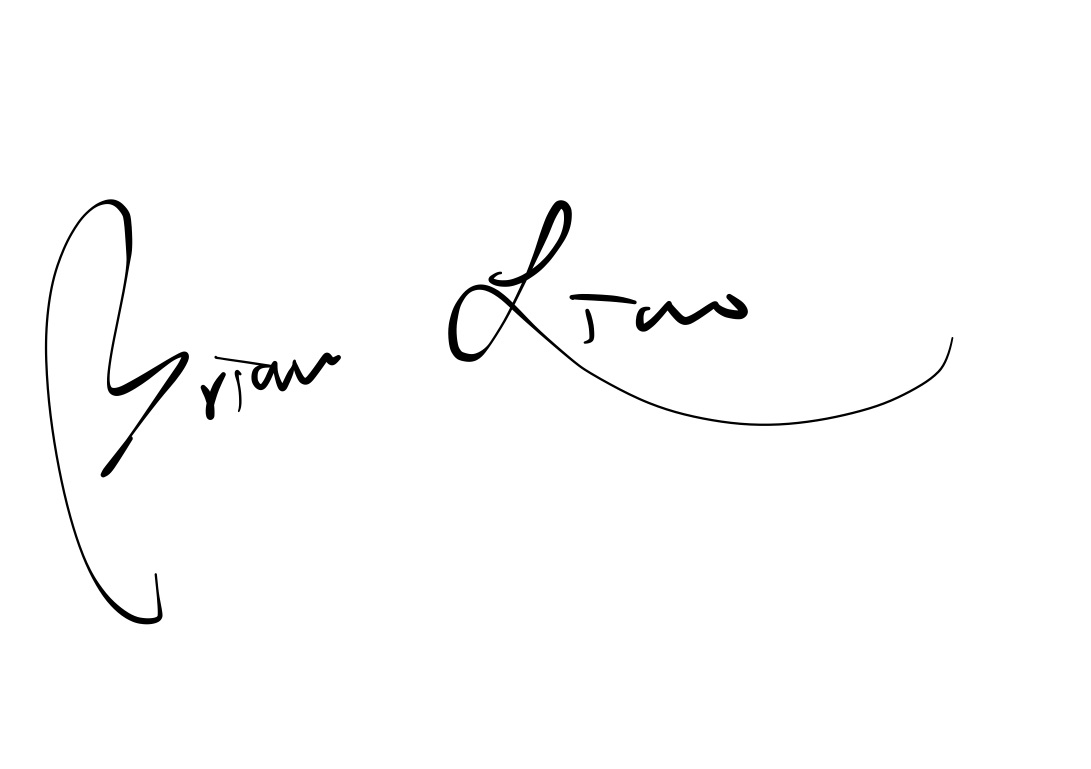 Brian Liao